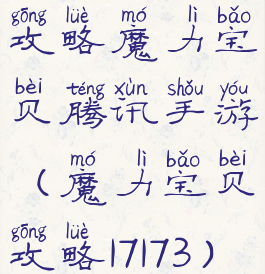 gōng lüè mó lì bǎo
攻略魔力宝
bèi téng xùn shǒu yóu
贝腾讯手游
mó lì bǎo bèi
(魔力宝贝
gōng lüè
攻略17173)